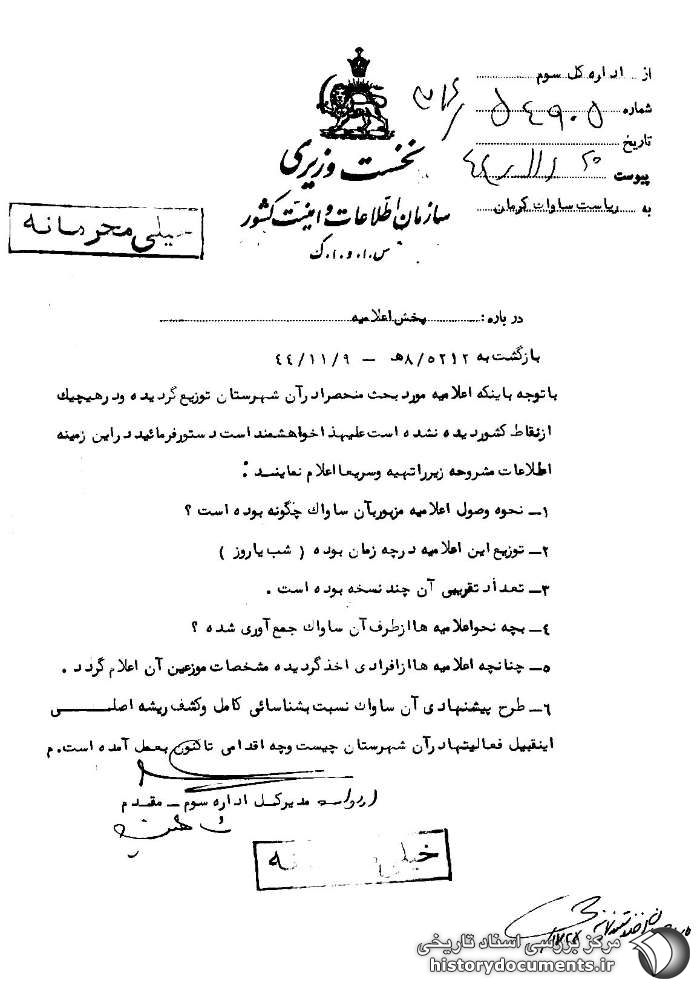 از اداره کل سوم
شماره ۵۴۹۰۵ / ۳۱۶
تاریخ
پیوست
به ریاست ساواک کرمان
نخست وزیری
سازمان اطلاعات و امنیت کشور
س.ا.و.ا.ک
خیلی محرمانه
درباره: پخش اعلامیه
بازگشت به ۸/۵۲۱۲ه‍ – ۴۴/۱۱/۹
باتوجه باینکه اعلامیه مورد بحث منحصرا درآن شهرستان توزیع گردیده ودرهیچیک
ازنقاط کشور دیده نشده است علیهذا خواهشمند است دستور فرمائید دراین زمینه
اطلاعات مشروحه زیر را تهیه وسریعا اعلام نمایند :
۱– نحوه وصول اعلامیه مزبور بآن ساواک چگونه بوده است ؟
۲– توزیع این اعلامیه درچه زمان بوده ( شب یا روز )
۳– تعداد تقریبی آن چند نسخه بوده است .
۴– بچه نحو اعلامیه ها از طرف آن ساواک جمع آوری شده ؟
۵– چنانچه اعلامیه ها از افرادی اخذ گردیده مشخصات موزعین آن اعلام گردد .
۶– طرح پیشنهادی آن ساواک نسبت بشناسائی کامل وکشف ریشه اصلی
اینقبیل فعالیتها درآن شهرستان چیست وچه اقدامی تاکنون بعمل آمده است. م
مدیرکل اداره سوم – مقدم
مرکز بررسی اسناد تاریخی
historydocuments.ir